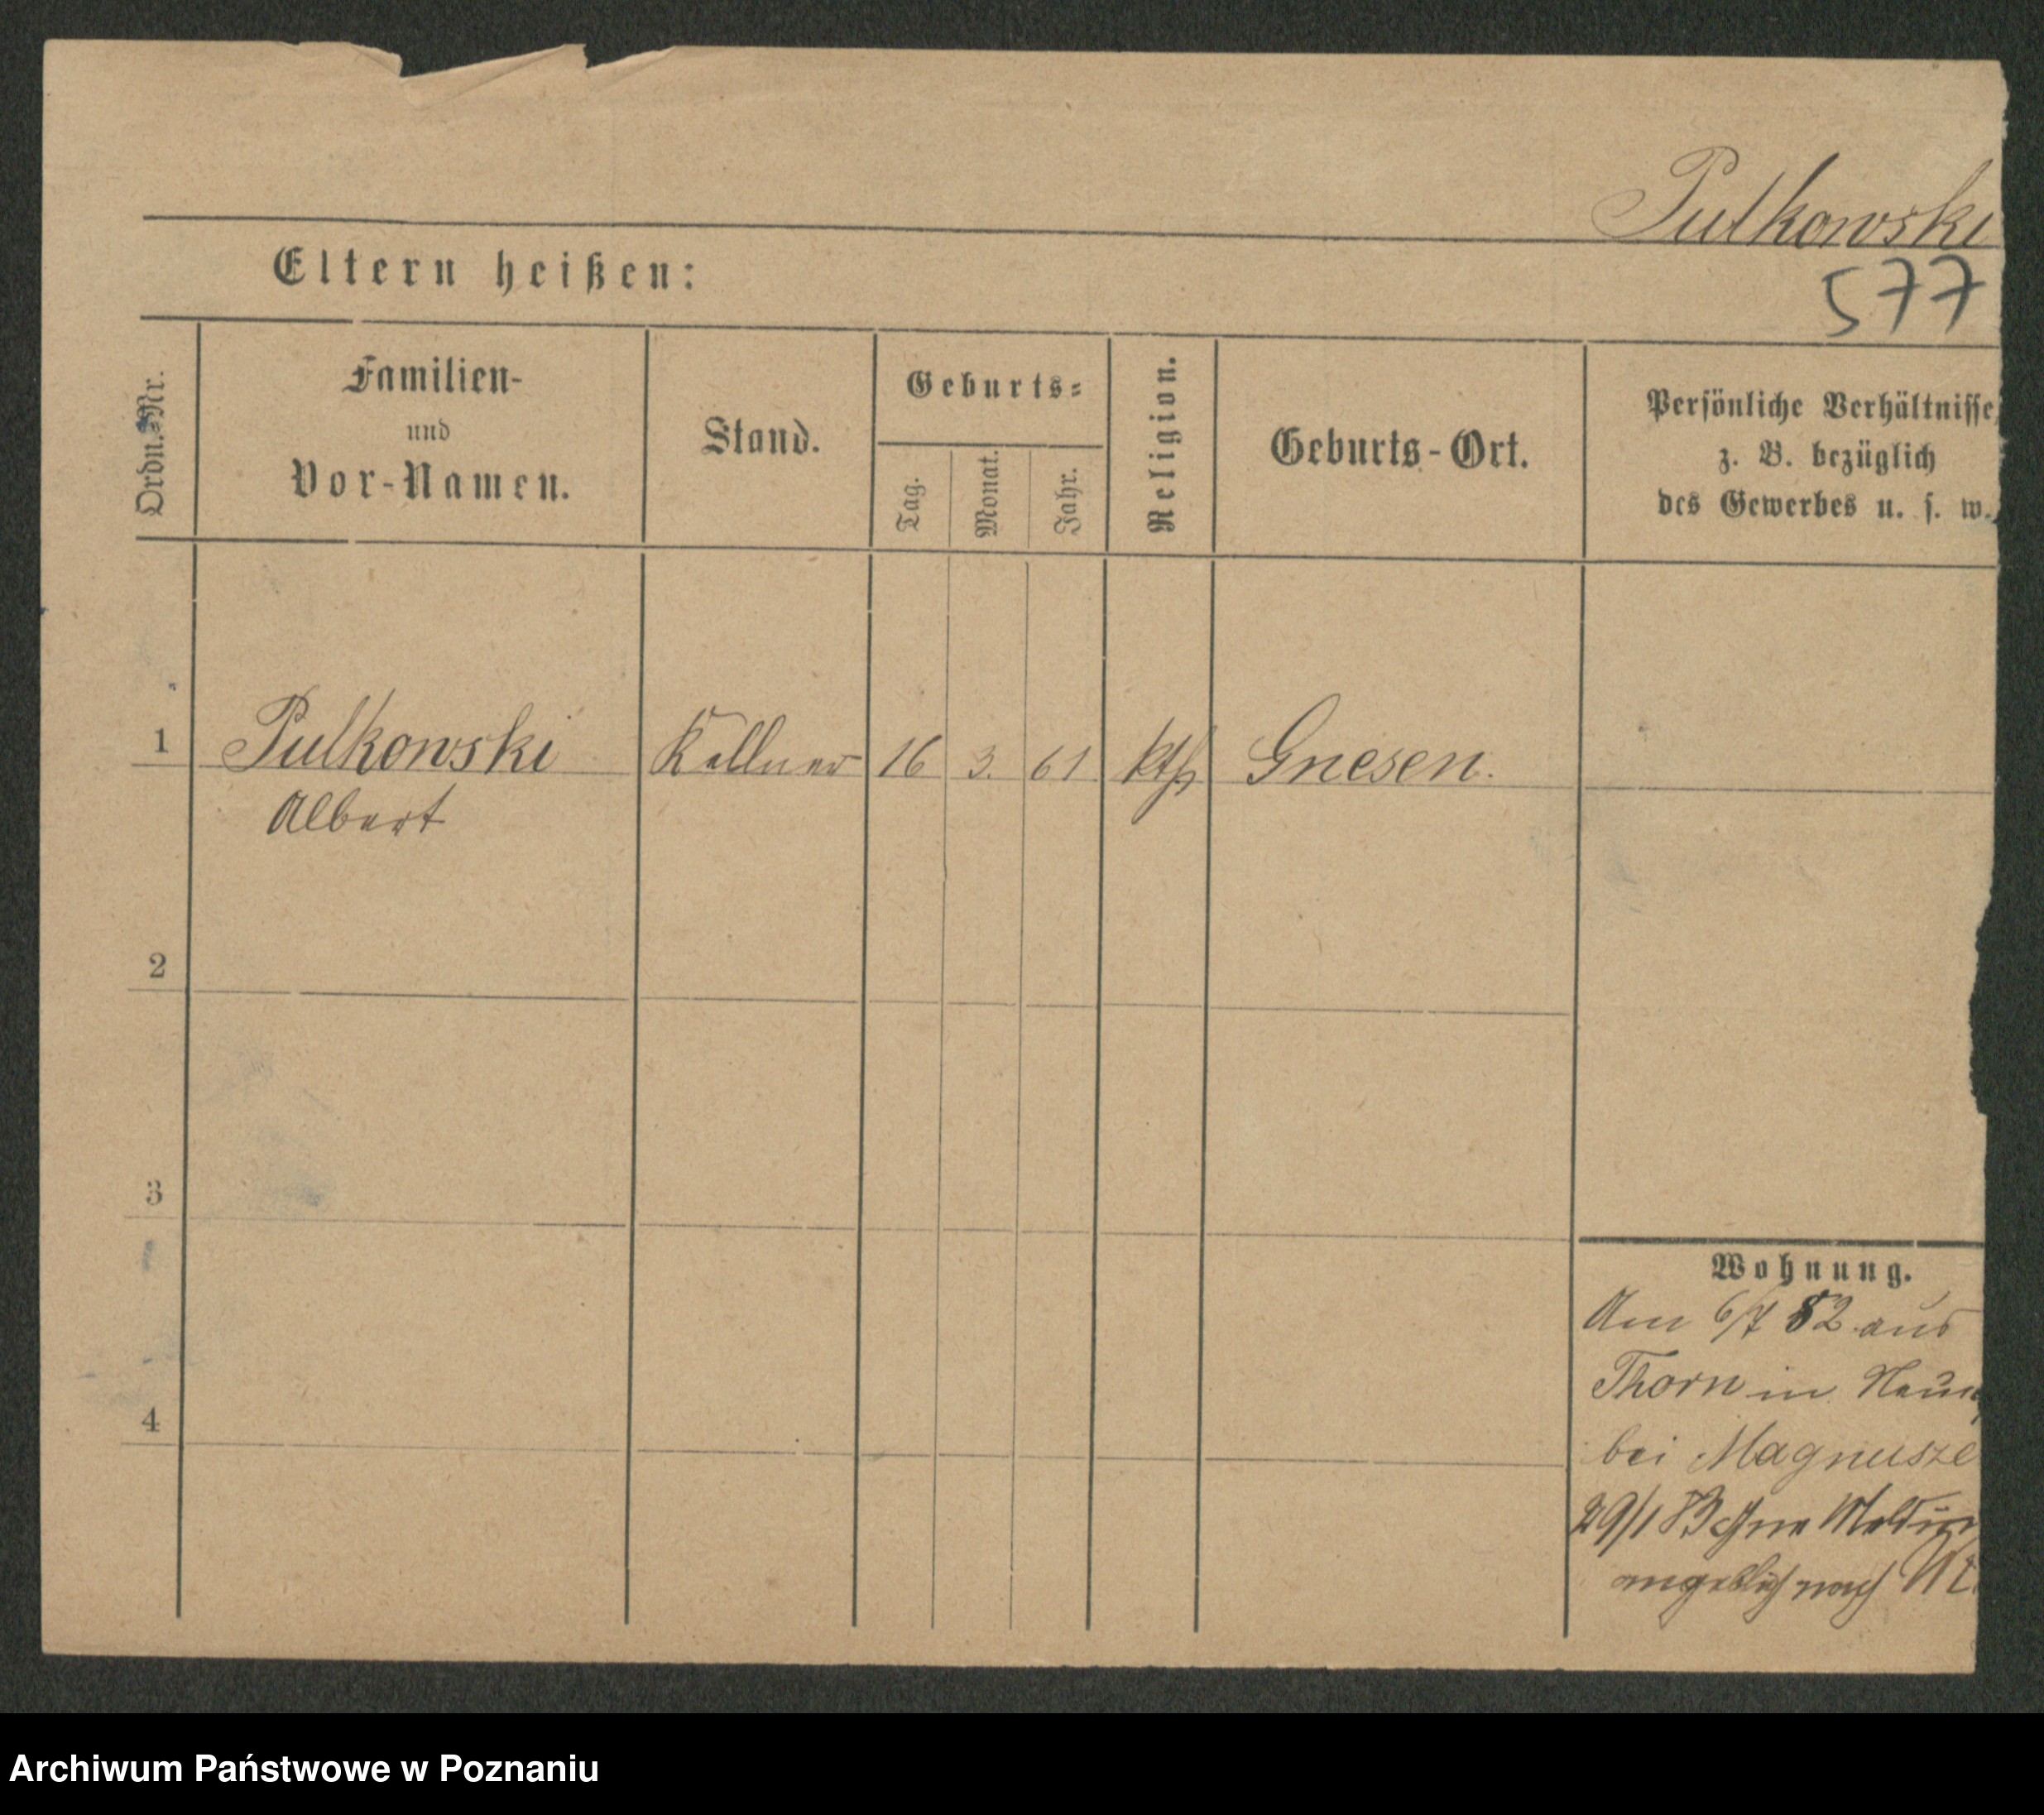 Pulkowski
577
Eltern heißen:
Ordn.-Nr.
Familien-
und
Vor-Namen.
Stand.
Geburts-
Tag.
Monat.
Jahr.
Religion.
Geburts-Ort.
Persönliche Verhältnisse,
z. B. bezüglich
des Gewerbes u. s. w.
1 Pulkowski Kellner 16 3. 61 kth Gnesen.
Albert
2
3
4
Wohnung.
Am 6/7 82 aus
Thorn in
bei Magnusze
29/1 83 ohne Meldun
angeblich nach
Archiwum Państwowe w Poznaniu